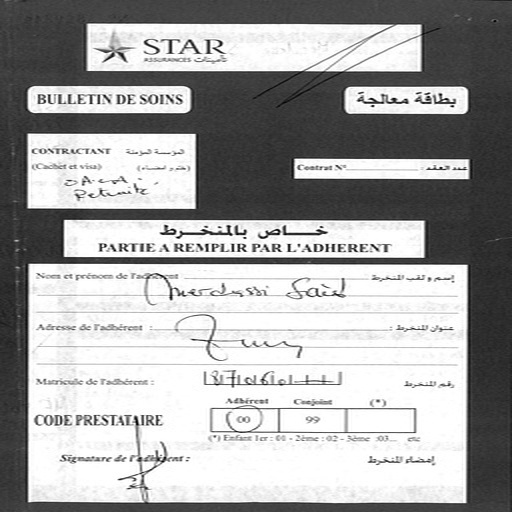 STAR
ASSURANCES تأمينات
BULLETIN DE SOINS
بطاقة معالجة
CONTRACTANT المؤسسة المؤمنة
(Cachet et visa) (ختم و امضاء)
Retraité
Contrat N° عدد العقد :
خــاص بالمنخرط
PARTIE A REMPLIR PAR L'ADHERENT
Nom et prénom de l'adhérent إسم و لقب المنخرط
Saïd
Adresse de l'adhérent : عنوان المنخرط :
Matricule de l'adhérent : رقم المنخرط
Adhérent Conjoint (*)
CODE PRESTATAIRE 00 99
(*) Enfant 1er : 01 - 2ème : 02 - 3ème :03... etc
Signature de l'adhérent : إمضاء المنخرط